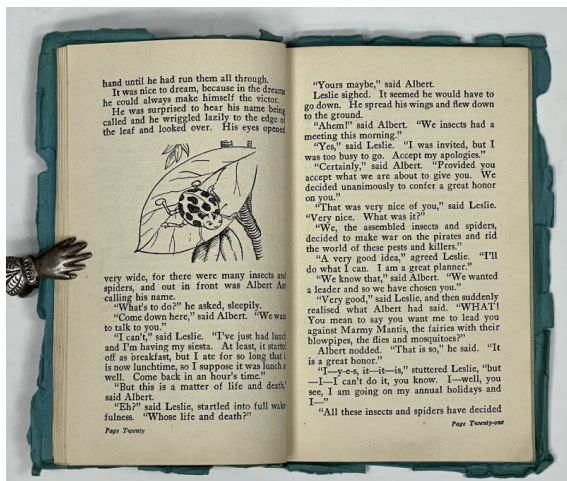 hand until he had run them all through.
It was nice to dream, because in the dreams
he could always make himself the victor.
He was surprised to hear his name being
called and he wriggled lazily to the edge of
the leaf and looked over. His eyes opened
very wide, for there were many insects and
spiders, and out in front was Albert Ant
calling his name.
"What's to do?" he asked, sleepily.
"Come down here," said Albert. "We want
to talk to you."
"I can't," said Leslie. "I've just had lunch
and I'm having my siesta. At least, it started
off as breakfast, but I ate for so long that i
is now lunchtime, so I suppose it was lunch a
well. Come back in an hour's time."
"But this is a matter of life and death,"
said Albert.
"Eh?" said Leslie, startled into full wake
fulness. "Whose life and death?"
Page Twenty
"Yours maybe," said Albert.
Leslie sighed. It seemed he would have to
go down. He spread his wings and flew down
to the ground.
"Ahem!" said Albert. "We insects had a
meeting this morning."
"Yes," said Leslie. "I was invited, but I
was too busy to go. Accept my apologies."
"Certainly," said Albert. "Provided you
accept what we are about to give you. We
decided unanimously to confer a great honor
on you."
"That was very nice of you," said Leslie.
"Very nice. What was it?"
"We, the assembled insects and spiders,
decided to make war on the pirates and rid
the world of these pests and killers."
"A very good idea," agreed Leslie. "I'll
do what I can. I am a great planner."
"We know that," said Albert. "We wanted
a leader and so we have chosen you."
"Very good," said Leslie, and then suddenly
realised what Albert had said. "WHAT!
You mean to say you want me to lead you
against Marmy Mantis, the fairies with their
blowpipes, the flies and mosquitoes?"
Albert nodded. "That is so," he said. "It
is a great honor."
"I—y-e-s, it—it—is," stuttered Leslie, "but
—I—I can't do it, you know. I—well, you
see, I am going on my annual holidays and
I—"
"All these insects and spiders have decided
Page Twenty-one